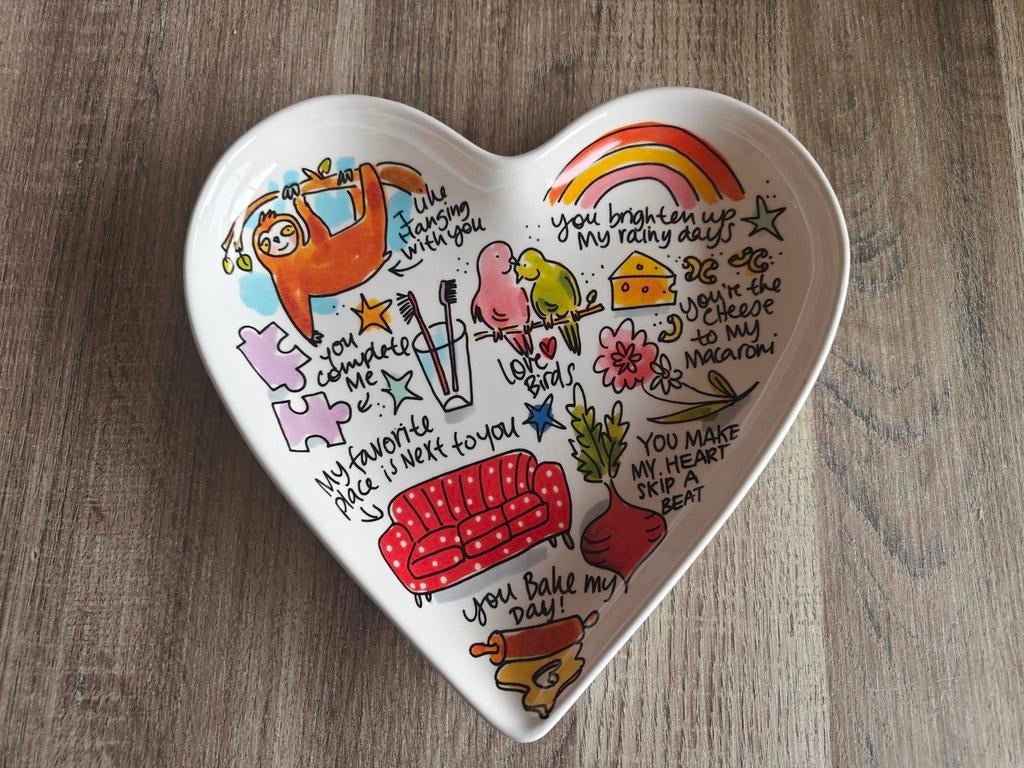 I like
Hanging
with you
you brighten up
My rainy days
you're the
cheese
to my
Macaroni
you
complete
Me
Love
Birds
My favorite
place is next to you
YOU MAKE
MY HEART
SKIP A
BEAT
you Bake my
Day!